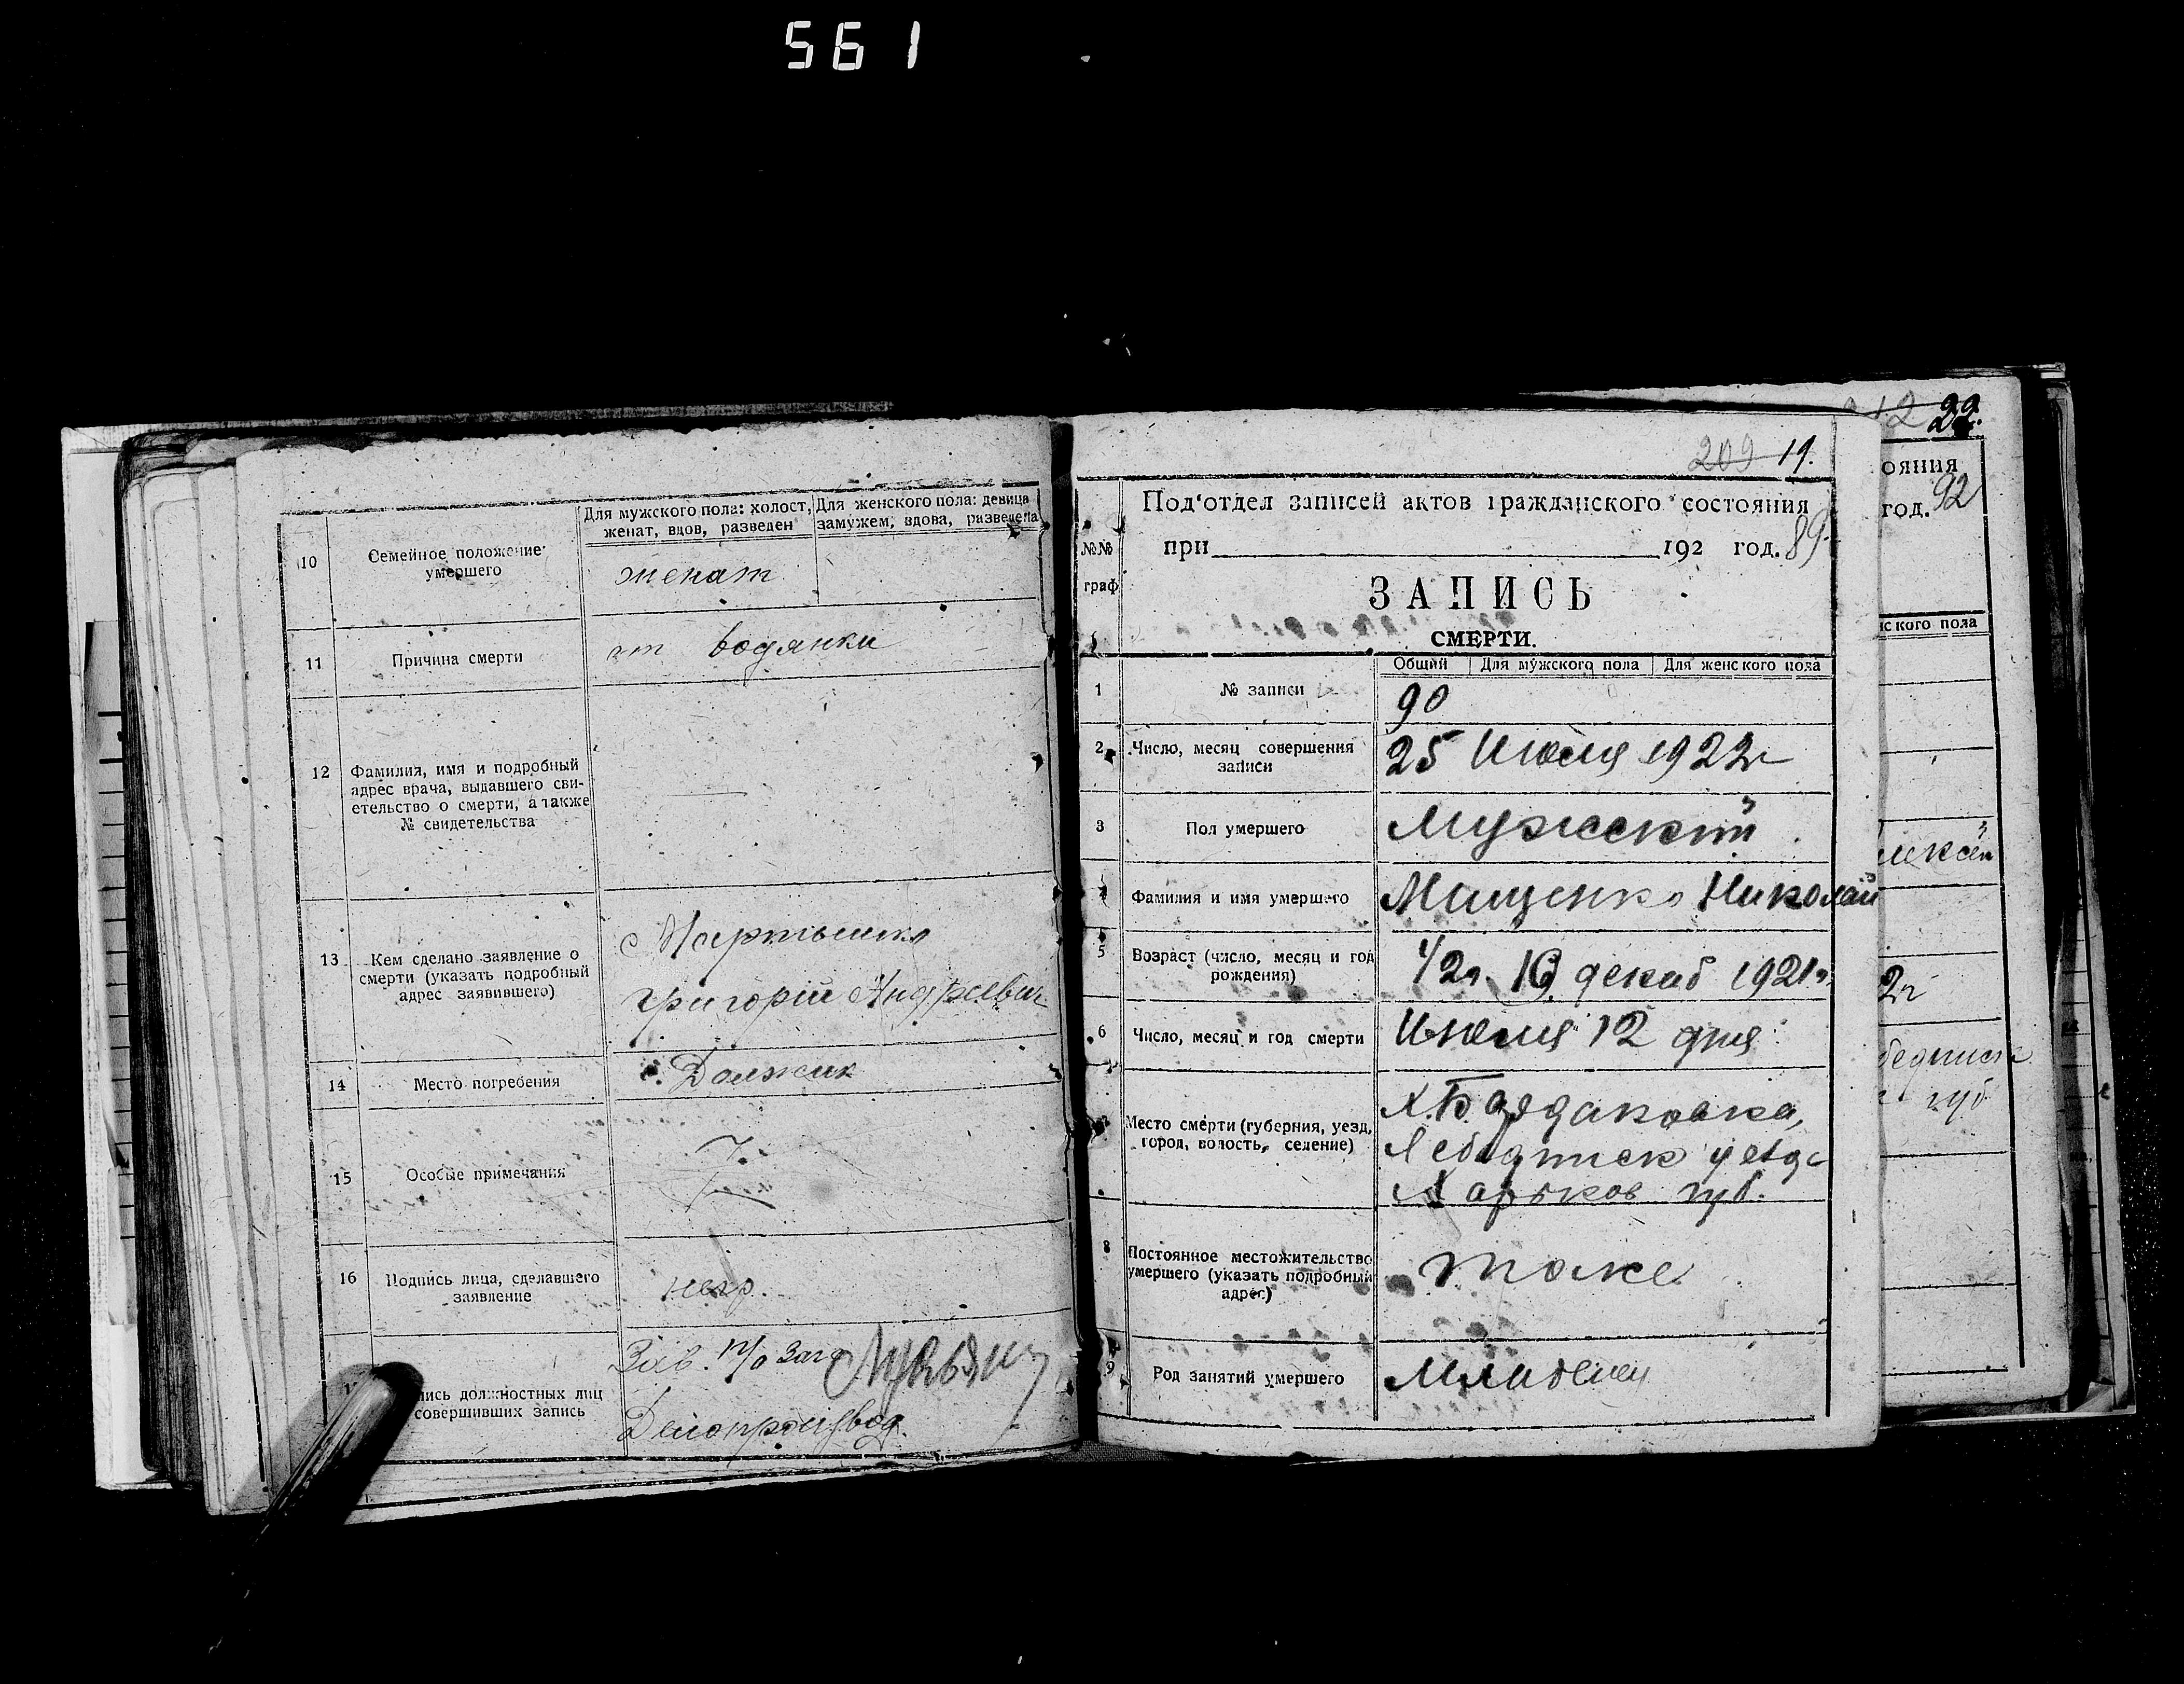 561
10
Семейное положение умершего
Для мужского пола: холост, женат, вдов, разведен
Для женского пола: девица замужем, вдова, разведена
женат
11
Причина смерти
от водянки
12
Фамилия, имя и подробный
адрес врача, выдавшего сви-
етельство о смерти, а также
№ свидетельства
13
Кем сделано заявление о
смерти (указать подробный
адрес заявившего)
Григорий Андреевич
14
Место погребения
с. Должик
15
Особые примечания
16
Подпись лица, сделавшего
заявление
негр.
ись должностных лиц
совершивших запись
Зав. п/о Загс
Делопроизвод.
209 19.
Под'отдел записей актов гражданского состояния
при 192 год. 89.
№№
граф
ЗАПИСЬ
СМЕРТИ.
Общий
Для мужского пола
Для женского пола
1
№ записи
90
2
Число, месяц совершения
записи
25 Июля 1922г
3
Пол умершего
Мужеский
4
Фамилия и имя умершего
Мищенко Николай
5
Возраст (число, месяц и год
рождения)
1/2г. 16 декаб 1921г.
6
Число, месяц и год смерти
Июля 12 дня
Место смерти (губерния, уезд,
город, волость, селение)
Х.
Лебединск уезда
Харьков губ.
8
Постоянное местожительство
умершего (указать подробный
адрес)
тоже
9
Род занятий умершего
Младенец
22.
ояния
год. 92
нского пола
2г
губ